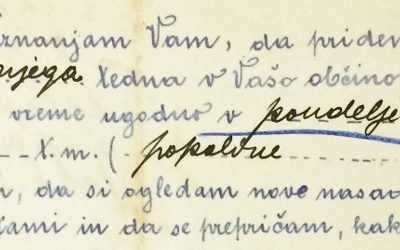 znanjam Vam, da pride
njega tedna v Vašo občino
vreme ugodno v pondelje
t.m. ( popoldne
, da si ogledam nove nasad
kami in da se prepričam, kak